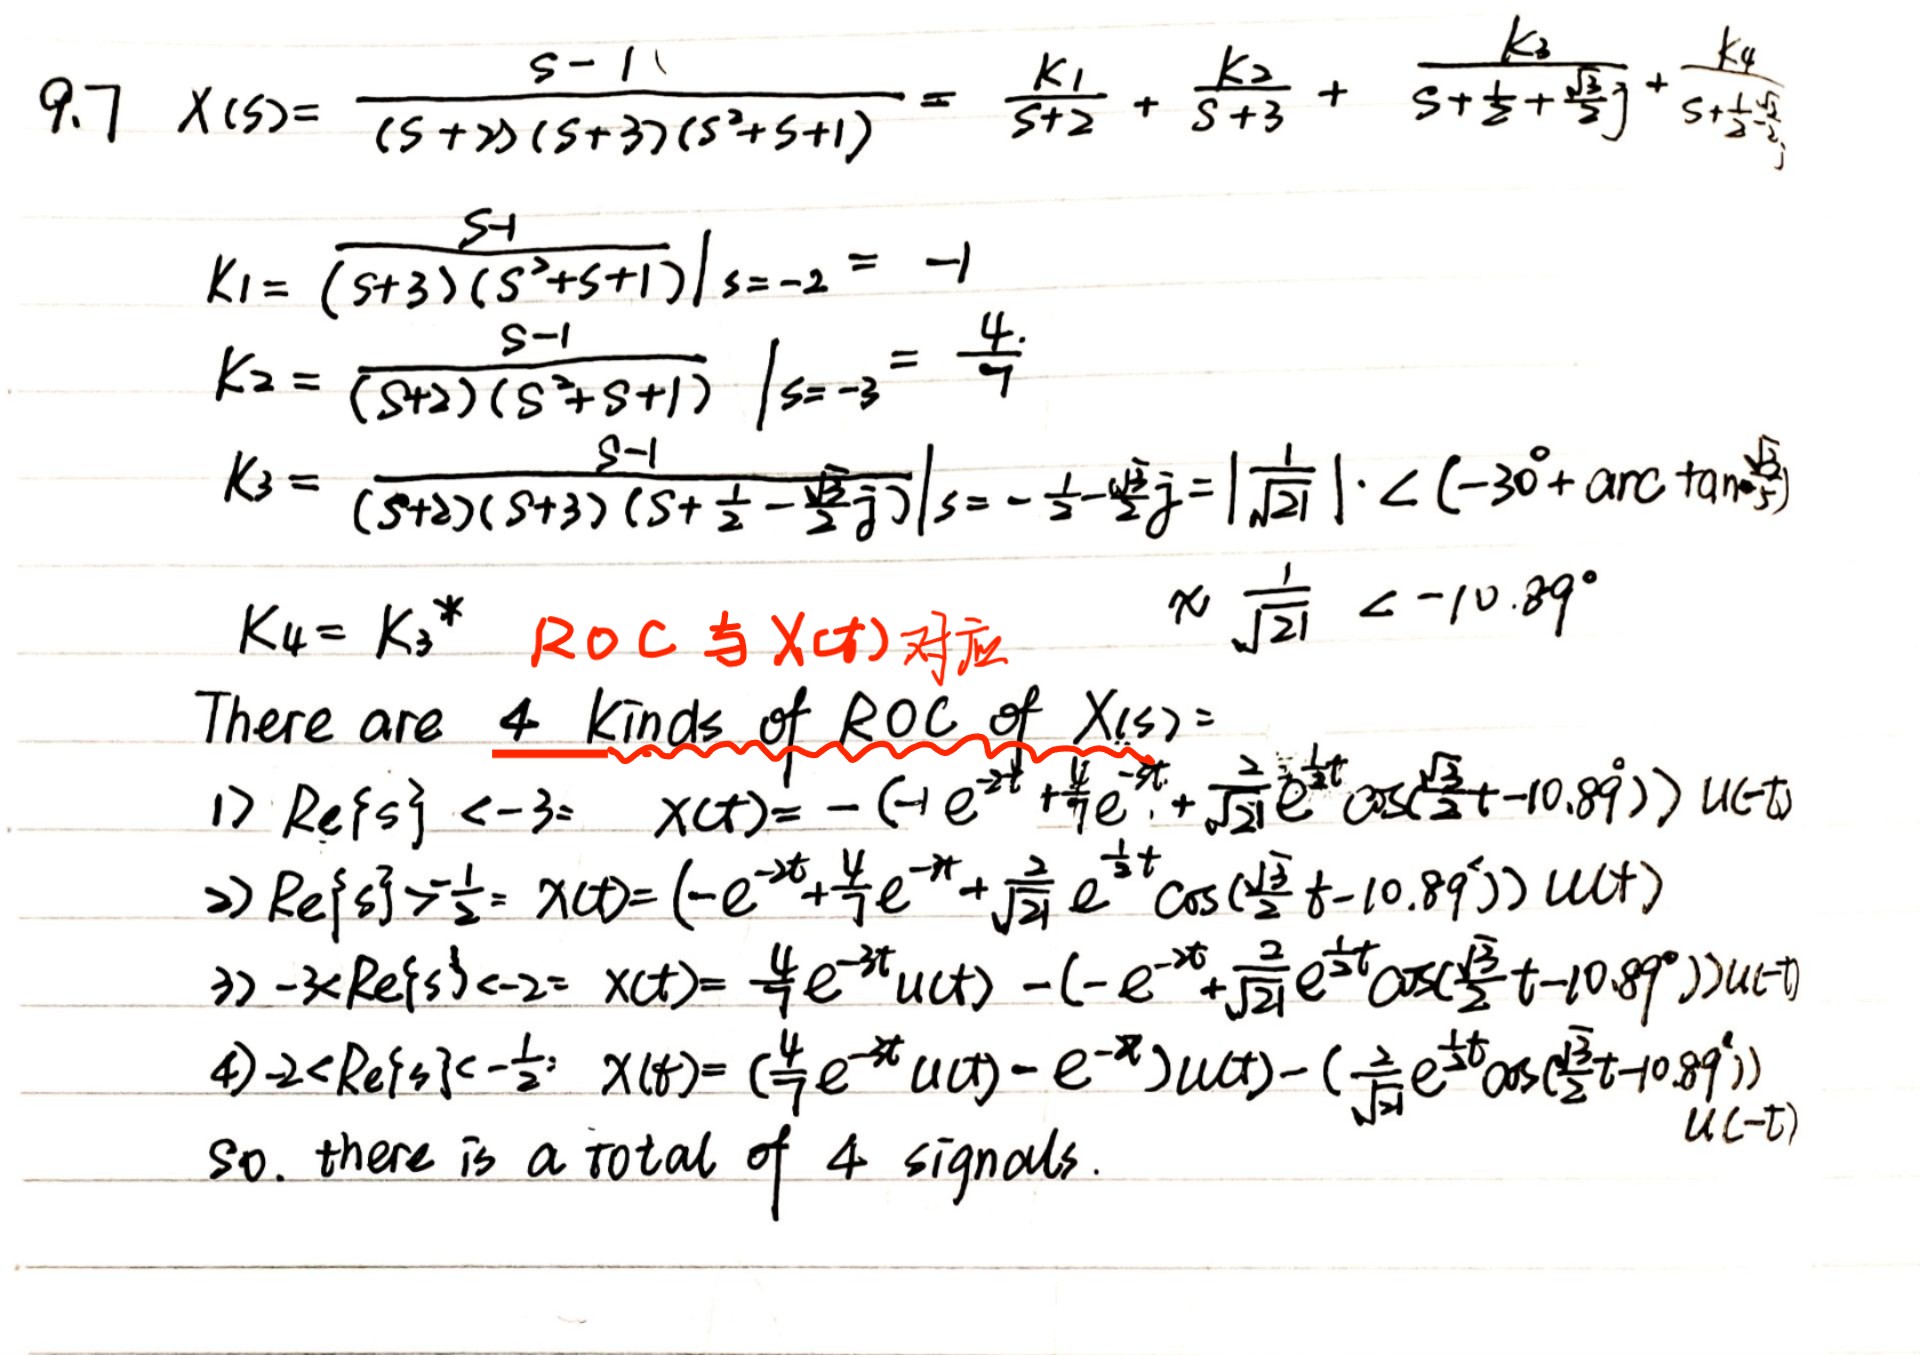 9.7 X(s)= (s-1)/((s+2)(s+3)(s²+s+1)) = K1/(s+2) + K2/(s+3) + K3/(s+1/2+√3/2 j) + K4/(s+1/2-√3/2 j)
K1= (s-1)/((s+3)(s²+s+1)) | s=-2 = -1
K2= (s-1)/((s+2)(s²+s+1)) | s=-3 = 4/7
K3= (s-1)/((s+2)(s+3)(s+1/2-√3/2 j)) | s=-1/2-√3/2 j = |1/√21|·∠(-30°+arc tan √3/5)
≈ 1/√21 ∠-10.89°
K4= K3* ROC与X(t)对应
There are 4 kinds of ROC of X(s):
1) Re{s} <-3: x(t)= -(-1e^-2t + 4/7 e^-3t + 2/√21 e^1/2t cos(√3/2 t-10.89°))u(-t)
2) Re{s}>-1/2: x(t)=(-e^-2t + 4/7 e^-3t + 2/√21 e^1/2t cos(√3/2 t-10.89°))u(t)
3) -3<Re{s}<-2: x(t)= 4/7 e^-3t u(t) -(-e^-2t + 2/√21 e^1/2t cos(√3/2 t-10.89°))u(-t)
4) -2<Re{s}<-1/2: x(t)= (4/7 e^-3t u(t)-e^-2t)u(t)-(2/√21 e^1/2t cos(√3/2 t-10.89°))
u(-t)
so. there is a total of 4 signals.